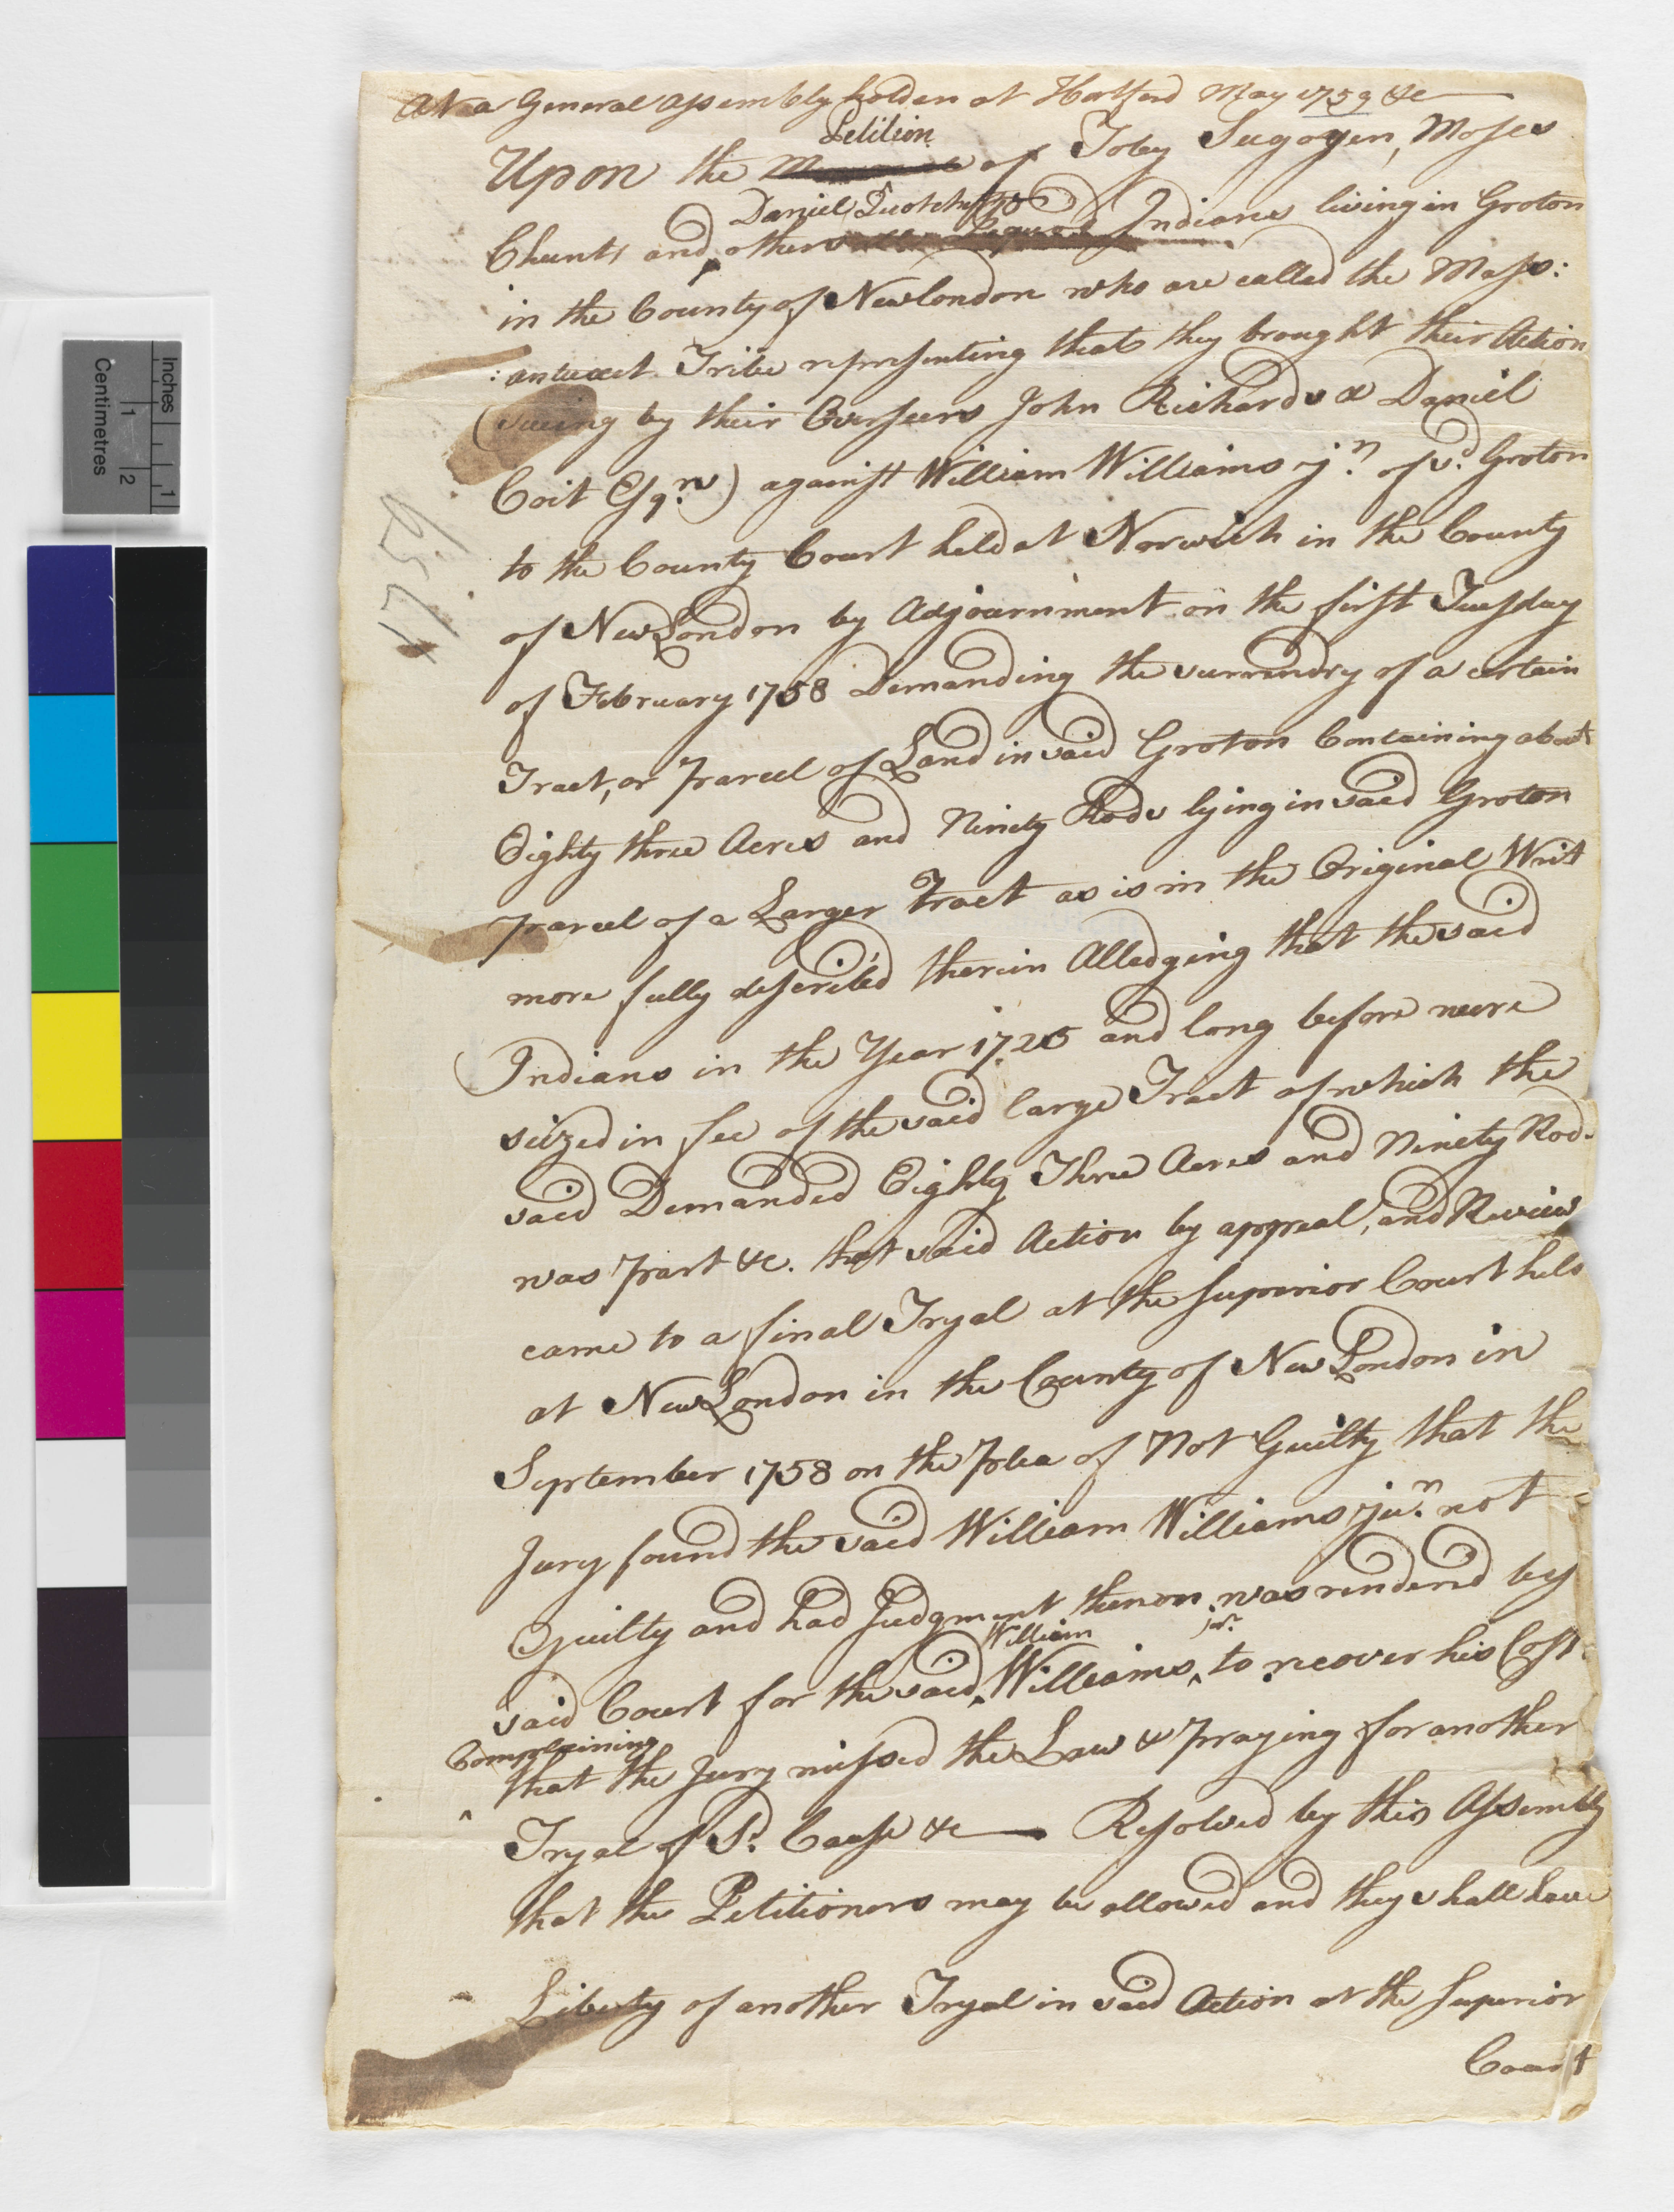 At a General Assembly holden at Hartford May 1759 &c
Petition
Upon the of Toby Sugogen, Moses
Daniel Quotcheats
Chunk and others Indians living in Groton
in the County of New London who are called the Mass:
:antuxet Tribe representing that they brought their Action
(sueing by their Overseers John Richards & Daniel
Coit Esqrs) against William Williams jn. of sd. Groton
to the County Court held at Norwich in the County
of New London by Adjournment on the first Tuesday
of February 1758 Demanding the surrendry of a certain
Tract, or parcel of Land in said Groton Containing about
Eighty three Acres and Ninety Rods lying in said Groton
parcel of a Larger Tract as is in the Original Writ
more fully describ'd therein Alledging that the said
Indians in the Year 1725 and long before were
siezed in fee of the said large Tract of which the
said Demanded Eighty Three Acres and Ninety Rod.
was part &c. that said Action by appeal, and Review
came to a final Tryal at the Superior Court held
at New London in the County of New London in
September 1758 on the Plea of Not Guilty that the
Jury found the said William Williams jun. not
Guilty and had Judgment thereon was rendered by
William jnr.
said Court for the said Williams to recover his Cost.
Complaining
that the Jury missed the Law & Praying for another
Tryal of Sd. Cause &c Resolved by this Assembly
that the Petitioners may be allowed and they shall have
Liberty of another Tryal in said Action at the Superior
Court
1759
Inches
1
Centimetres
1
2